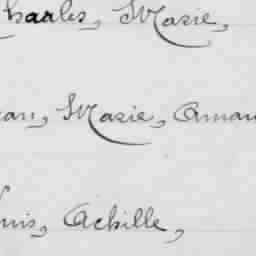 Charles, Marie,
ean, Marie, Aman
uis, Achille,